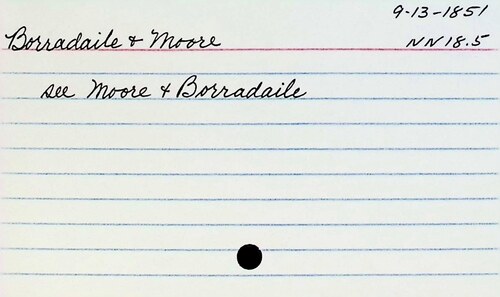 9-13-1851
Borradaile & Moore
NN18.5
see Moore & Borradaile